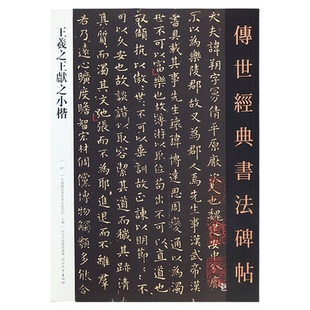 傳世經典書法碑帖
大夫諱朔字曼倩平原厭次人也魏建安中分厭
次以為樂陵郡故又為郡人焉先生事漢武帝漢
書具載其事先生瓌瑋博達思周變通以為濁
世不可以富樂也故薄遊以取位苟出不可以直道也
故頡頏以傲世傲世不可以垂訓故正諫以明節明節不
可以久安也故詼諧以取容潔其道而穢其跡清
其質而濁其文弛張而不為耶進退而不離群
若乃遠心曠度贍智宏材倜儻博物觸類多能合
王羲之王獻之小楷